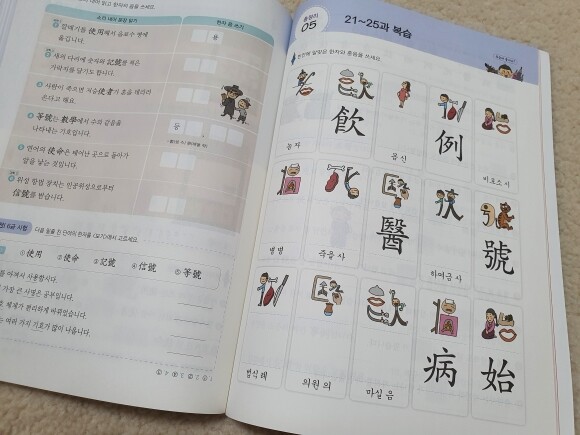 소리 내어 문장 읽기
한자 음 쓰기
갈매기를 使用해서 음료수 병에
옮깁니다.
용
새의 다리에 숫자와 記號를 적은
가락지를 달기도 합니다.
사람이 죽으면 저승使者가 혼을 데려
간다고 해요.
等號는 數學에서 수의 같음을
나타내는 기호입니다.
등
연어의 使命은 태어난 곳으로 돌아가
알을 낳는 것입니다.
위성 항법 장치는 인공위성으로부터
信號를 받습니다.
6급 시험
다음 밑줄 친 단어의 한자를 〈보기〉에서 고르세요.
①使用 ②使命 ③記號 ④信號 ⑤等號
아껴서 사용합시다.
가장 큰 사명은 공부입니다.
체계가 편리하게 바뀌었습니다.
여러 가지 기호가 많이 나옵니다.
총정리
05
21~25과 복습
빈칸에 알맞은 한자와 훈음을 쓰세요.
飮
例
놈 자
몸 신
비로소 시
醫
號
병 병
죽을 사
하여금 사
病
始
법식 례
의원 의
마실 음